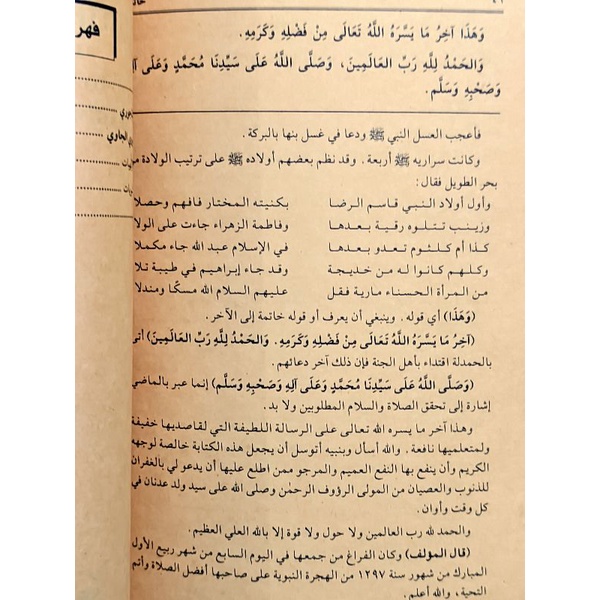 ٤٦
خاتـ
وَهَذَا آخِرُ مَا يَسَّرَهُ اللَّهُ تَعَالَى مِنْ فَضْلِهِ وَكَرَمِهِ.
وَالحَمْدُ لِلَّهِ رَبِّ العَالَمِينَ، وَصَلَّى اللَّهُ عَلَى سَيِّدِنَا مُحَمَّدٍ وَعَلَى آلِهِ
وَصَحْبِهِ وَسَلَّم.
فأعجب العسل النبي ﷺ ودعا في عسل بنها بالبركة.
وكانت سراريه ﷺ أربعة. وقد نظم بعضهم أولاده ﷺ على ترتيب الولادة من
بحر الطويل فقال:
وأول أولاد النبي قاسم الرضا بكنيته المختار فافهم وحصلا
وزينب تتلوه رقية بعدها وفاطمة الزهراء جاءت على الولا
كذا أم كلثوم تعدو بعدها في الإسلام عبد الله جاء مكملا
وكلهم كانوا له من خديجة وقد جاء إبراهيم في طيبة تلا
من المرأة الحسناء مارية فقل عليهم السلام الله مسكًا ومندلا
(وَهَذَا) أي قوله. وينبغي أن يعرف أو قوله خاتمة إلى الآخر.
(آخِرُ مَا يَسَّرَهُ اللَّهُ تَعَالَى مِنْ فَضْلِهِ وَكَرَمِهِ. وَالحَمْدُ لِلَّهِ رَبِّ العَالَمِينَ) أتى
بالحمدلة اقتداء بأهل الجنة فإن ذلك آخر دعائهم.
(وَصَلَّى اللَّهُ عَلَى سَيِّدِنَا مُحَمَّدٍ وَعَلَى آلِهِ وَصَحْبِهِ وَسَلَّم) إنما عبر بالماضي
إشارة إلى تحقق الصلاة والسلام المطلوبين ولا بد.
وهذا آخر ما يسره الله تعالى على الرسالة اللطيفة التي لقاصديها خفيفة
ولمتعلميها نافعة. والله أسأل وبنبيه أتوسل أن يجعل هذه الكتابة خالصة لوجهه
الكريم وأن ينفع بها النفع العميم والمرجو ممن اطلع عليها أن يدعو لي بالغفران
للذنوب والعصيان من المولى الرؤوف الرحمٰن وصلى الله على سيد ولد عدنان في
كل وقت وأوان.
والحمد لله رب العالمين ولا حول ولا قوة إلا بالله العلي العظيم.
(قال المؤلف) وكان الفراغ من جمعها في اليوم السابع من شهر ربيع الأول
المبارك من شهور سنة ١٢٩٧ من الهجرة النبوية على صاحبها أفضل الصلاة وأتم
التحية، والله أعلم.
فهر